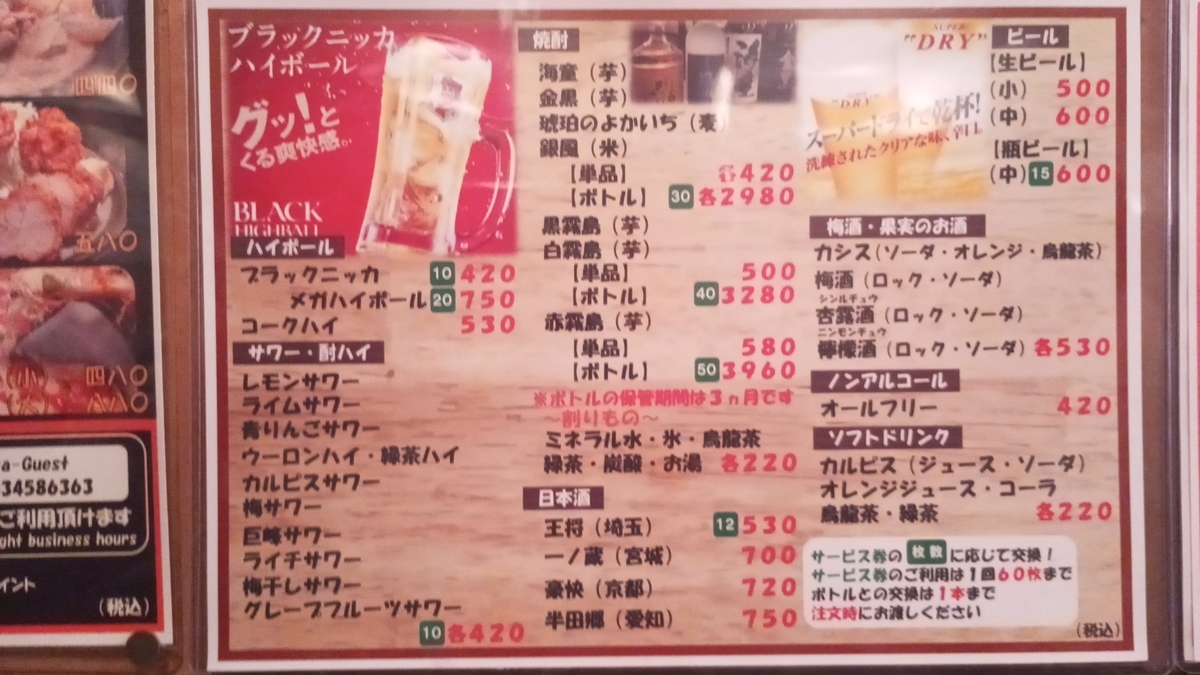 四四〇
五八〇
(小) 四八〇
a-Guest
034586363
ご利用頂けます
ght business hours
イント
(税込)
ブラックニッカ
ハイボール
グッ!と
くる爽快感。
BLACK
HIGHBALL
ハイボール
ブラックニッカ 10 420
メガハイボール 20 750
コークハイ 530
サワー・酎ハイ
レモンサワー
ライムサワー
青りんごサワー
ウーロンハイ・緑茶ハイ
カルピスサワー
梅サワー
巨峰サワー
ライチサワー
梅干しサワー
グレープフルーツサワー
10 各420
焼酎
海童(芋)
金黒(芋)
琥珀のよかいち(麦)
銀風(米)
【単品】 各420
【ボトル】 30 各2980
黒霧島(芋)
白霧島(芋)
【単品】 500
【ボトル】 40 3280
赤霧島(芋)
【単品】 580
【ボトル】 50 3960
※ボトルの保管期間は3ヵ月です
~割りもの~
ミネラル水・氷・烏龍茶
緑茶・炭酸・お湯 各220
日本酒
王将(埼玉) 12 530
一ノ蔵(宮城) 700
豪快(京都) 720
半田郷(愛知) 750
SUPER
"DRY"
"DRY"
スーパードライで乾杯!
洗練されたクリアな味、辛口。
ビール
【生ビール】
(小) 500
(中) 600
【瓶ビール】
(中) 15 600
梅酒・果実のお酒
カシス(ソーダ・オレンジ・烏龍茶)
梅酒(ロック・ソーダ)
シンルチュウ
杏露酒(ロック・ソーダ)
ニンモンチュウ
檸檬酒(ロック・ソーダ) 各530
ノンアルコール
オールフリー 420
ソフトドリンク
カルピス(ジュース・ソーダ)
オレンジジュース・コーラ
烏龍茶・緑茶 各220
サービス券の 枚数 に応じて交換!
サービス券のご利用は1回60枚まで
ボトルとの交換は1本まで
注文時にお渡しください
(税込)